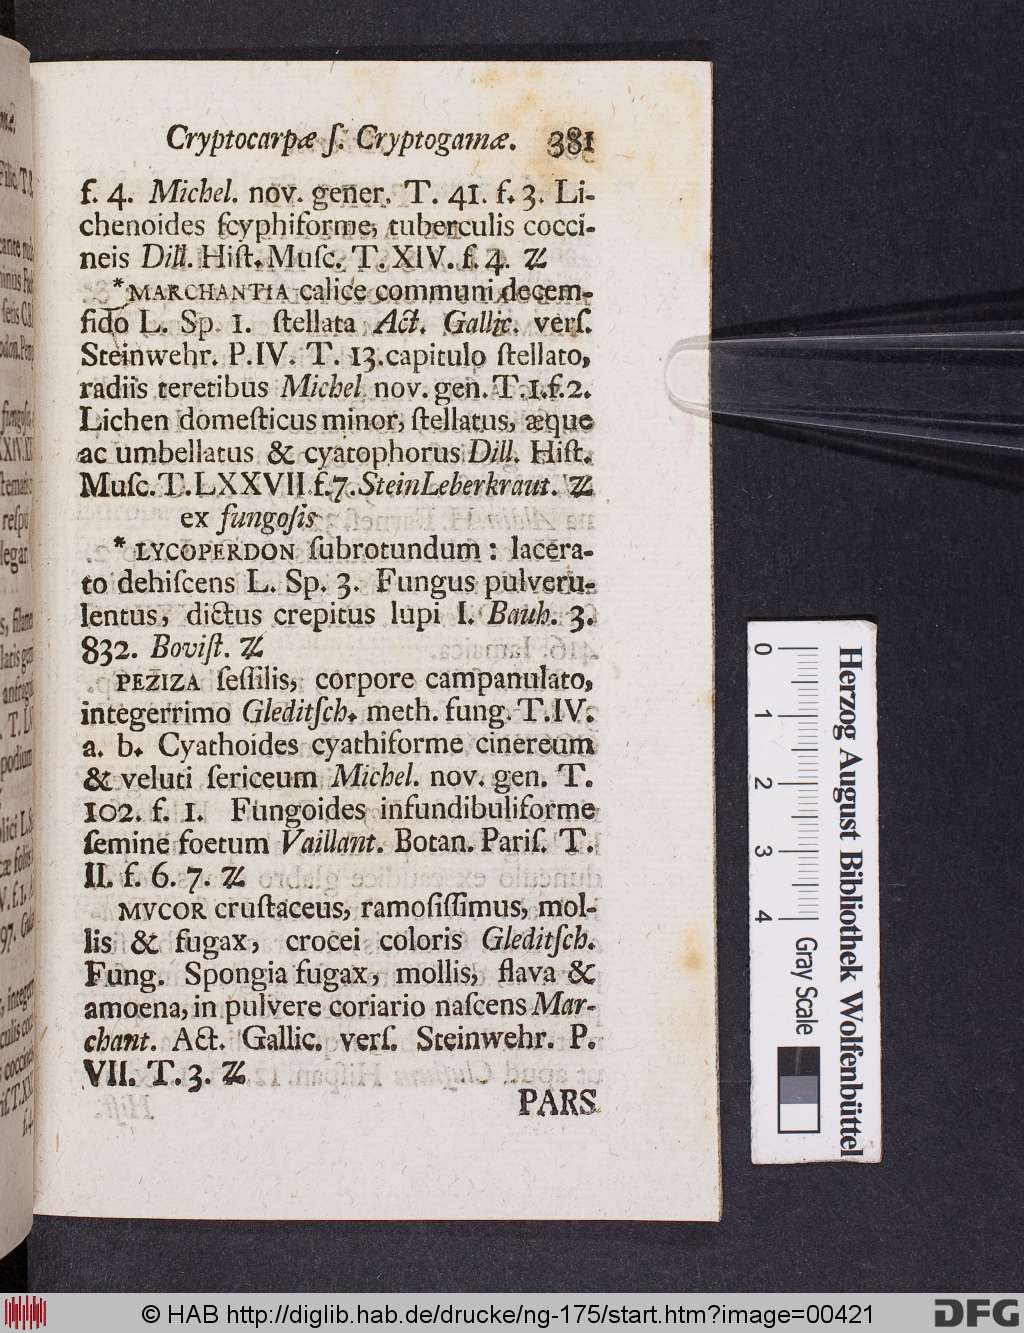 Cryptocarpæ ſ. Cryptogamæ. 381
f. 4. Michel. nov. gener. T. 41. f. 3. Li-
chenoides ſcyphiforme, tuberculis cocci-
neis Dill. Hiſt. Muſc. T. XIV. f. 4. ♃
* MARCHANTIA calice communi decem-
fido L. Sp. 1. ſtellata Act. Gallic. verſ.
Steinwehr. P. IV. T. 13. capitulo ſtellato,
radiis teretibus Michel nov. gen. T. 1. f. 2.
Lichen domeſticus minor, ſtellatus, æque
ac umbellatus & cyatophorus Dill. Hiſt.
Muſc. T. LXXVII f. 7. Stein Leberkraut. ♃
ex fungoſis
* LYCOPERDON ſubrotundum : lacera-
to dehiſcens L. Sp. 3. Fungus pulveru-
lentus, dictus crepitus lupi I. Bauh. 3.
832. Boviſt. ♃
PEZIZA ſeſſilis, corpore campanulato,
integerrimo Gleditſch. meth. fung. T. IV.
a. b. Cyathoides cyathiforme cinereum
& veluti ſericeum Michel. nov. gen. T.
102. f. 1. Fungoides infundibuliforme
ſemine foetum Vaillant. Botan. Pariſ. T.
II. f. 6. 7. ♃
MVCOR cruſtaceus, ramoſiſſimus, mol-
lis & fugax, crocei coloris Gleditſch.
Fung. Spongia fugax, mollis, flava &
amoena, in pulvere coriario naſcens Mar-
chant. Act. Gallic. verſ. Steinwehr. P.
VII. T. 3. ♃
PARS
0 1 2 3 4 Gray Scale
Herzog August Bibliothek Wolfenbüttel
© HAB http://diglib.hab.de/drucke/ng-175/start.htm?image=00421
DFG